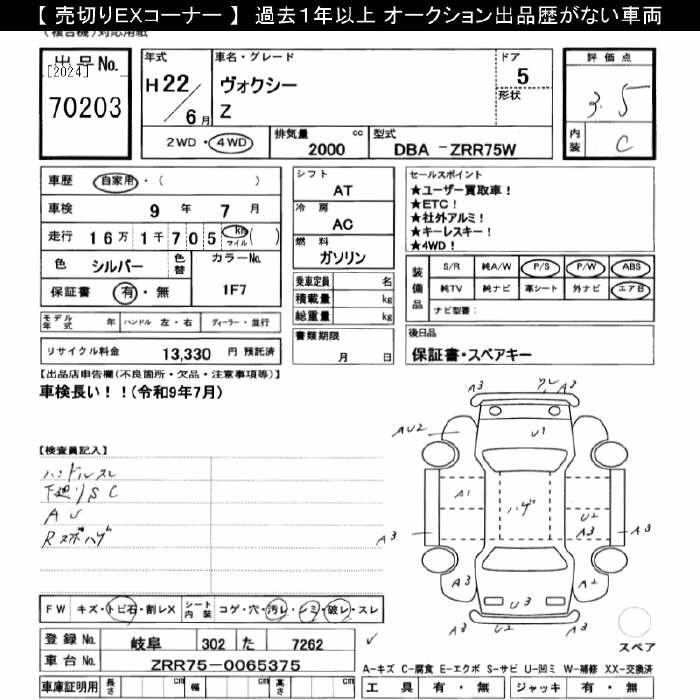 【 売切りEXコーナー 】 過去１年以上 オークション出品歴がない車両
（複合機）対応用紙
出品No.
[2024]
70203
年式
H 22 / 6 月
車名・グレード
ヴォクシー
Z
ドア
5
形状
評価点
3.5
内装
C
2WD・4WD
排気量 cc
2000
型式
DBA －ZRR75W
車歴 自家用・( )
車検 9 年 7 月
走行 16万 1千 705 km マイル ( )
色 シルバー 色替
カラーNo.
1F7
保証書 有・無
モデル年式 年 ハンドル 左・右 ディーラー・並行
リサイクル料金 13,330 円 預託済
シフト
AT
冷房
AC
燃料
ガソリン
乗車定員 名
積載量 kg
総重量 kg
書類期限
月 日
セールスポイント
★ユーザー買取車！
★ETC！
★社外アルミ！
★キーレスキー！
★4WD！
装備品
S/R 純A/W P/S P/W ABS
純TV 純ナビ 革シート 外ナビ エアB
ナビ型番：
後日品
保証書・スペアキー
【出品店申告欄(不良箇所・欠品・注意事項等)】
車検長い！！(令和9年7月)
【検査員記入】
ハンドルスレ
下廻りS C
A U
R スポハゲ
A3
A3
AU2
U1
A1
ハゲ
U2
A3
A3
A3
A3
A2
U3
A3
A3
スペア
FW キズ・トビ石・割レX シート内装 コゲ・穴・汚レ・シミ・破レ・スレ
登録No. 岐阜 302 た 7262
車台No. ZRR75-0065375
車庫証明用 長さ cm 幅 cm 高さ cm
A-キズ C-腐食 E-エクボ S-サビ U-凹ミ W-補修 XX-交換済
工具 有・無 ジャッキ 有・無